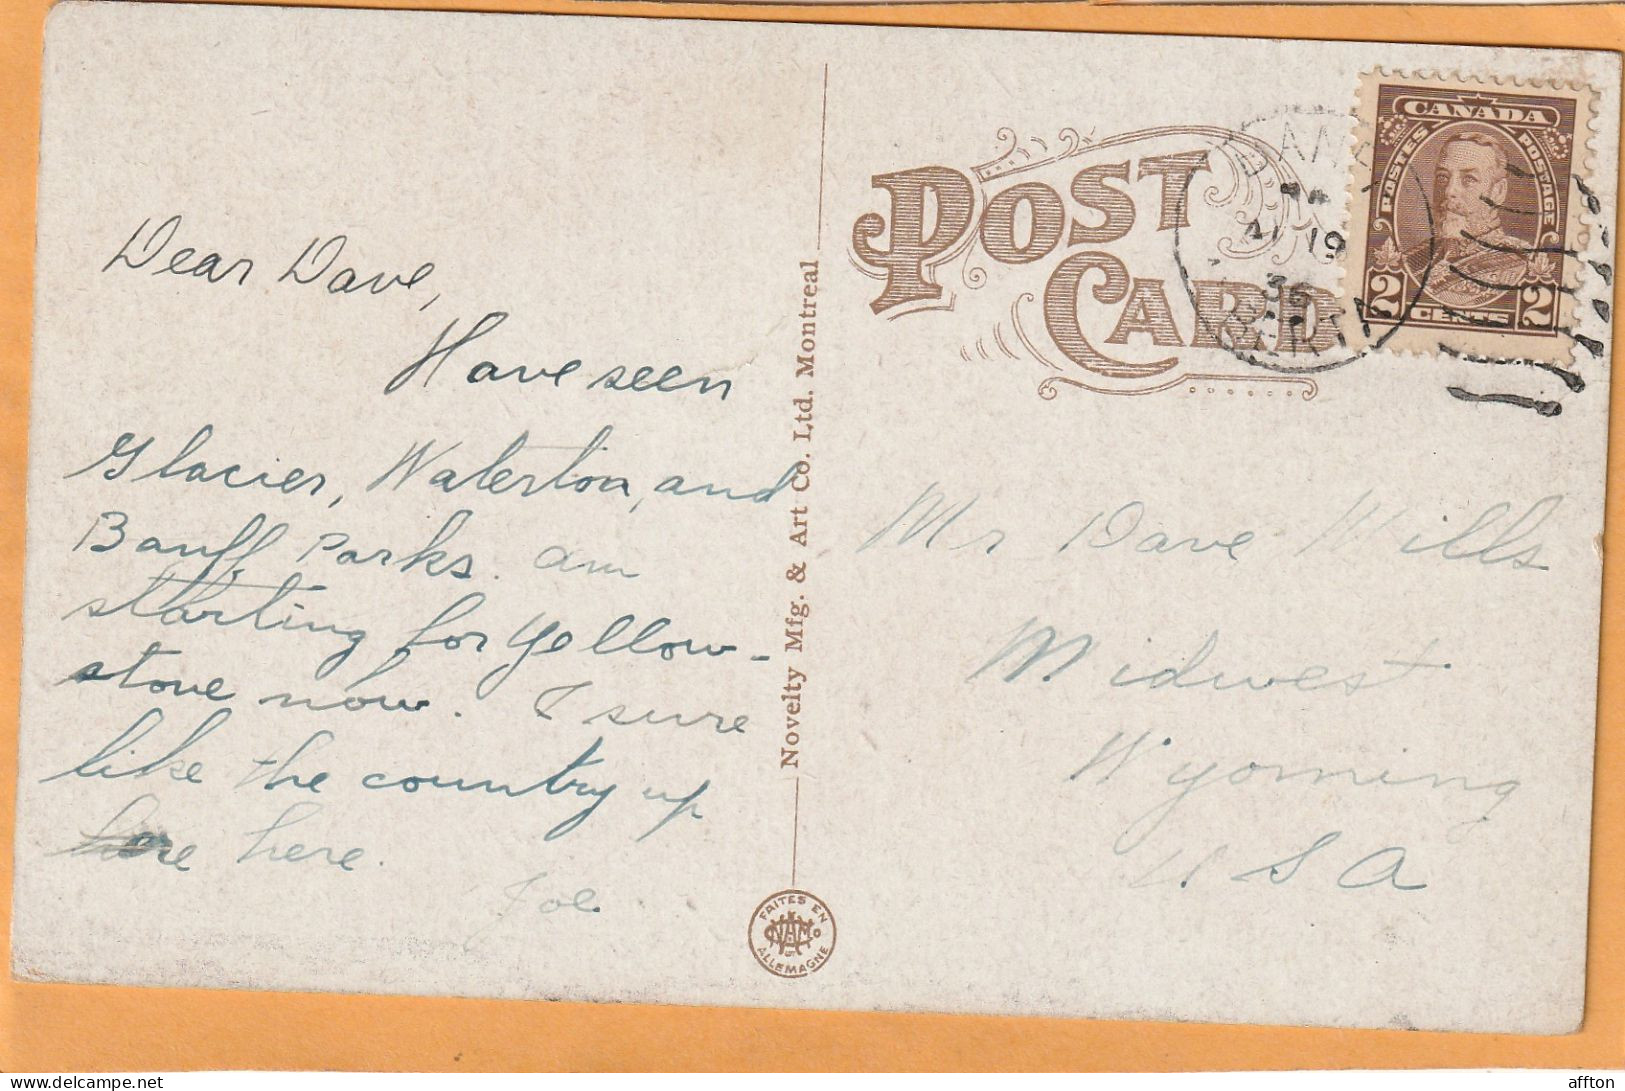 Dear Dave,
Have seen
Glacier, Waterton, and
Banff Parks. am
starting for Yellow-
stone now. I sure
like the country up
here here.
Joe.
Novelty Mfg. & Art Co. Ltd. Montreal
FAITES EN
ALLEMAGNE
POST
CARD
19
36
CANADA
POSTES
POSTAGE
2 CENTS 2
Mr Dave Wills
Midwest
Wyoming
U S A
delcampe.net
affton